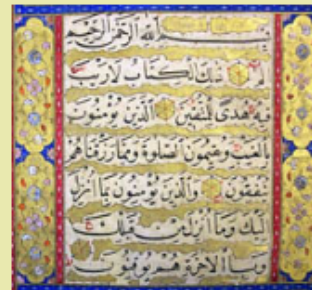 بسم الله الرحمن الرحيم
الم ذلك الكتاب لا ريب
فيه هدى للمتقين الذين يؤمنون
بالغيب ويقيمون الصلوة ومما رزقناهم
ينفقون والذين يؤمنون بما انزل
اليك وما انزل من قبلك
وبالاخرة هم يوقنون